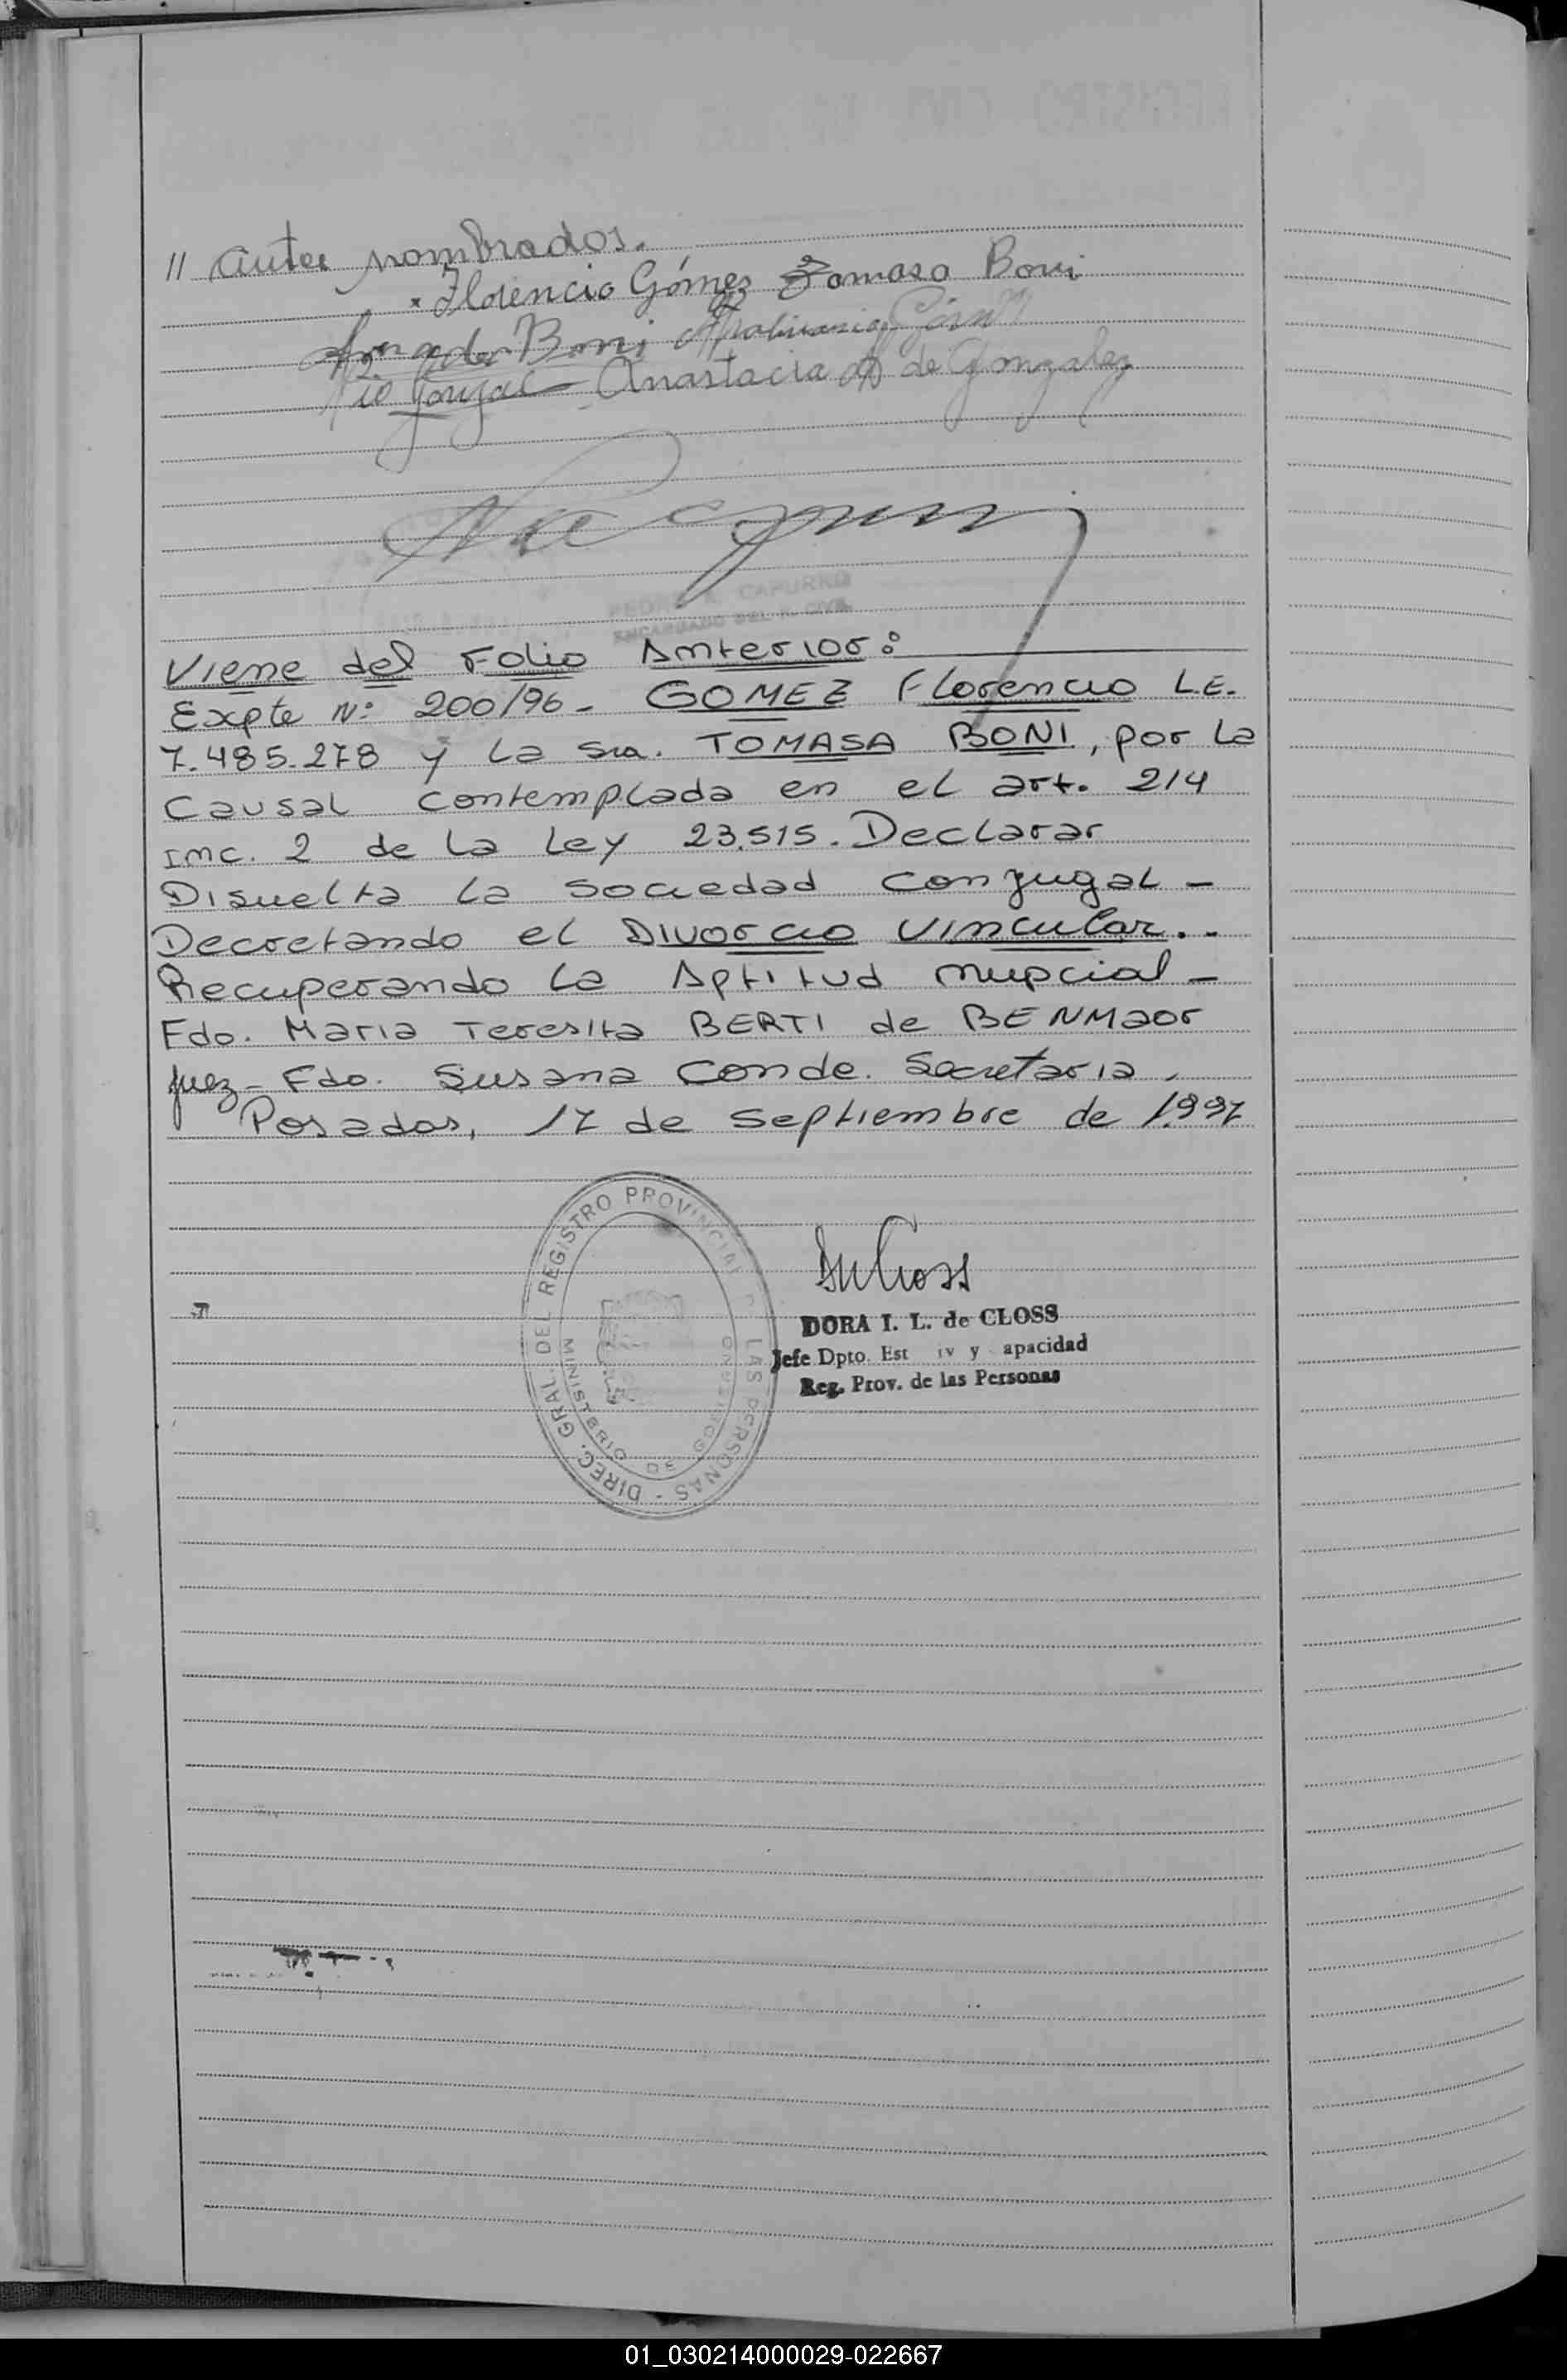 // antes nombrados.
Florencio Gómez Tomasa Boni
Boni
Pio Anastacia de Gonzalez
PEDRO CAPURRO
ENCARGADO DEL R. CIVIL
Viene del Folio Anterior:
Expte Nº: 200/96 - GOMEZ Florencio L.E.
7.485.278 y La Sra. TOMASA BONI, por La
Causal Contemplada en el art. 214
Inc. 2 de La Ley 23.515. Declarar
Disuelta La Sociedad Conyugal -
Decretando el Divorcio Vincular. -
Recuperando La Aptitud nupcial -
Fdo. Maria Teresita BERTI de BENMaor
Juez - Fdo. Susana Conde. Secretaria.
Posadas, 17 de Septiembre de 1.997
DIREC. GRAL. DEL REGISTRO PROVINCIAL LAS PERSONAS -
MINISTERIO DE GOBIERNO
DORA I. L. de CLOSS
Jefe Dpto. Est iv y apacidad
Reg. Prov. de las Personas
01_030214000029-022667